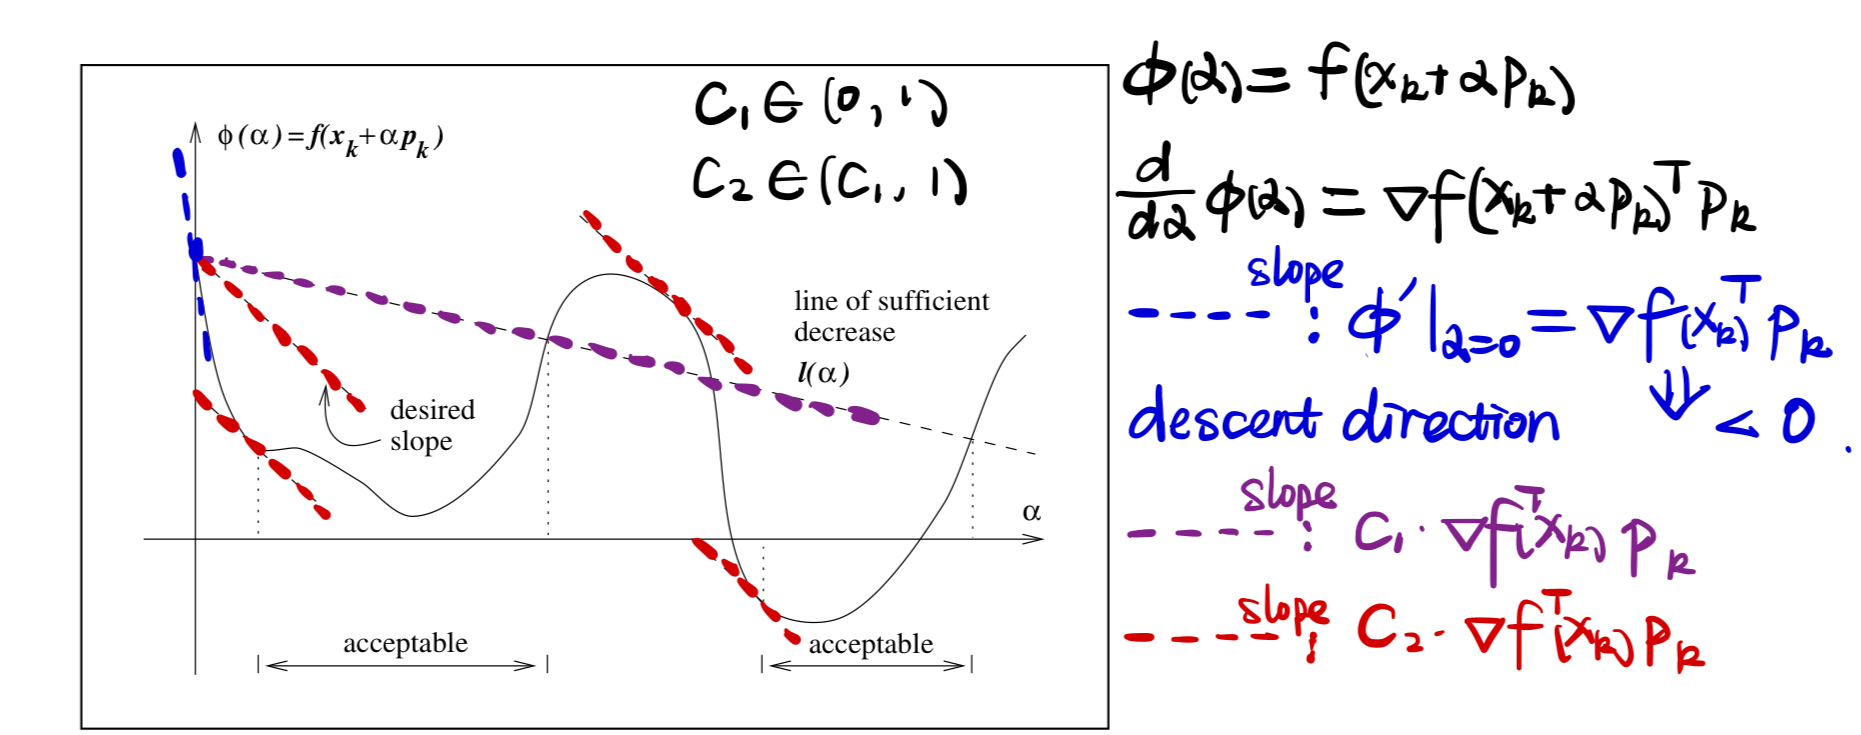 ϕ(α)=f(x_k+αp_k)
C₁ ∈ (0, 1)
C₂ ∈ (C₁, 1)
line of sufficient
decrease
l(α)
desired
slope
α
acceptable
acceptable
ϕ(α) = f(x_k + αp_k)
d/dα ϕ(α) = ∇f(x_k + αp_k)^T p_k
---- slope : ϕ'|_{α=0} = ∇f(x_k)^T p_k
descent direction ⇓ < 0 .
---- slope : C₁· ∇f^T(x_k) p_k
---- slope : C₂· ∇f^T(x_k) p_k